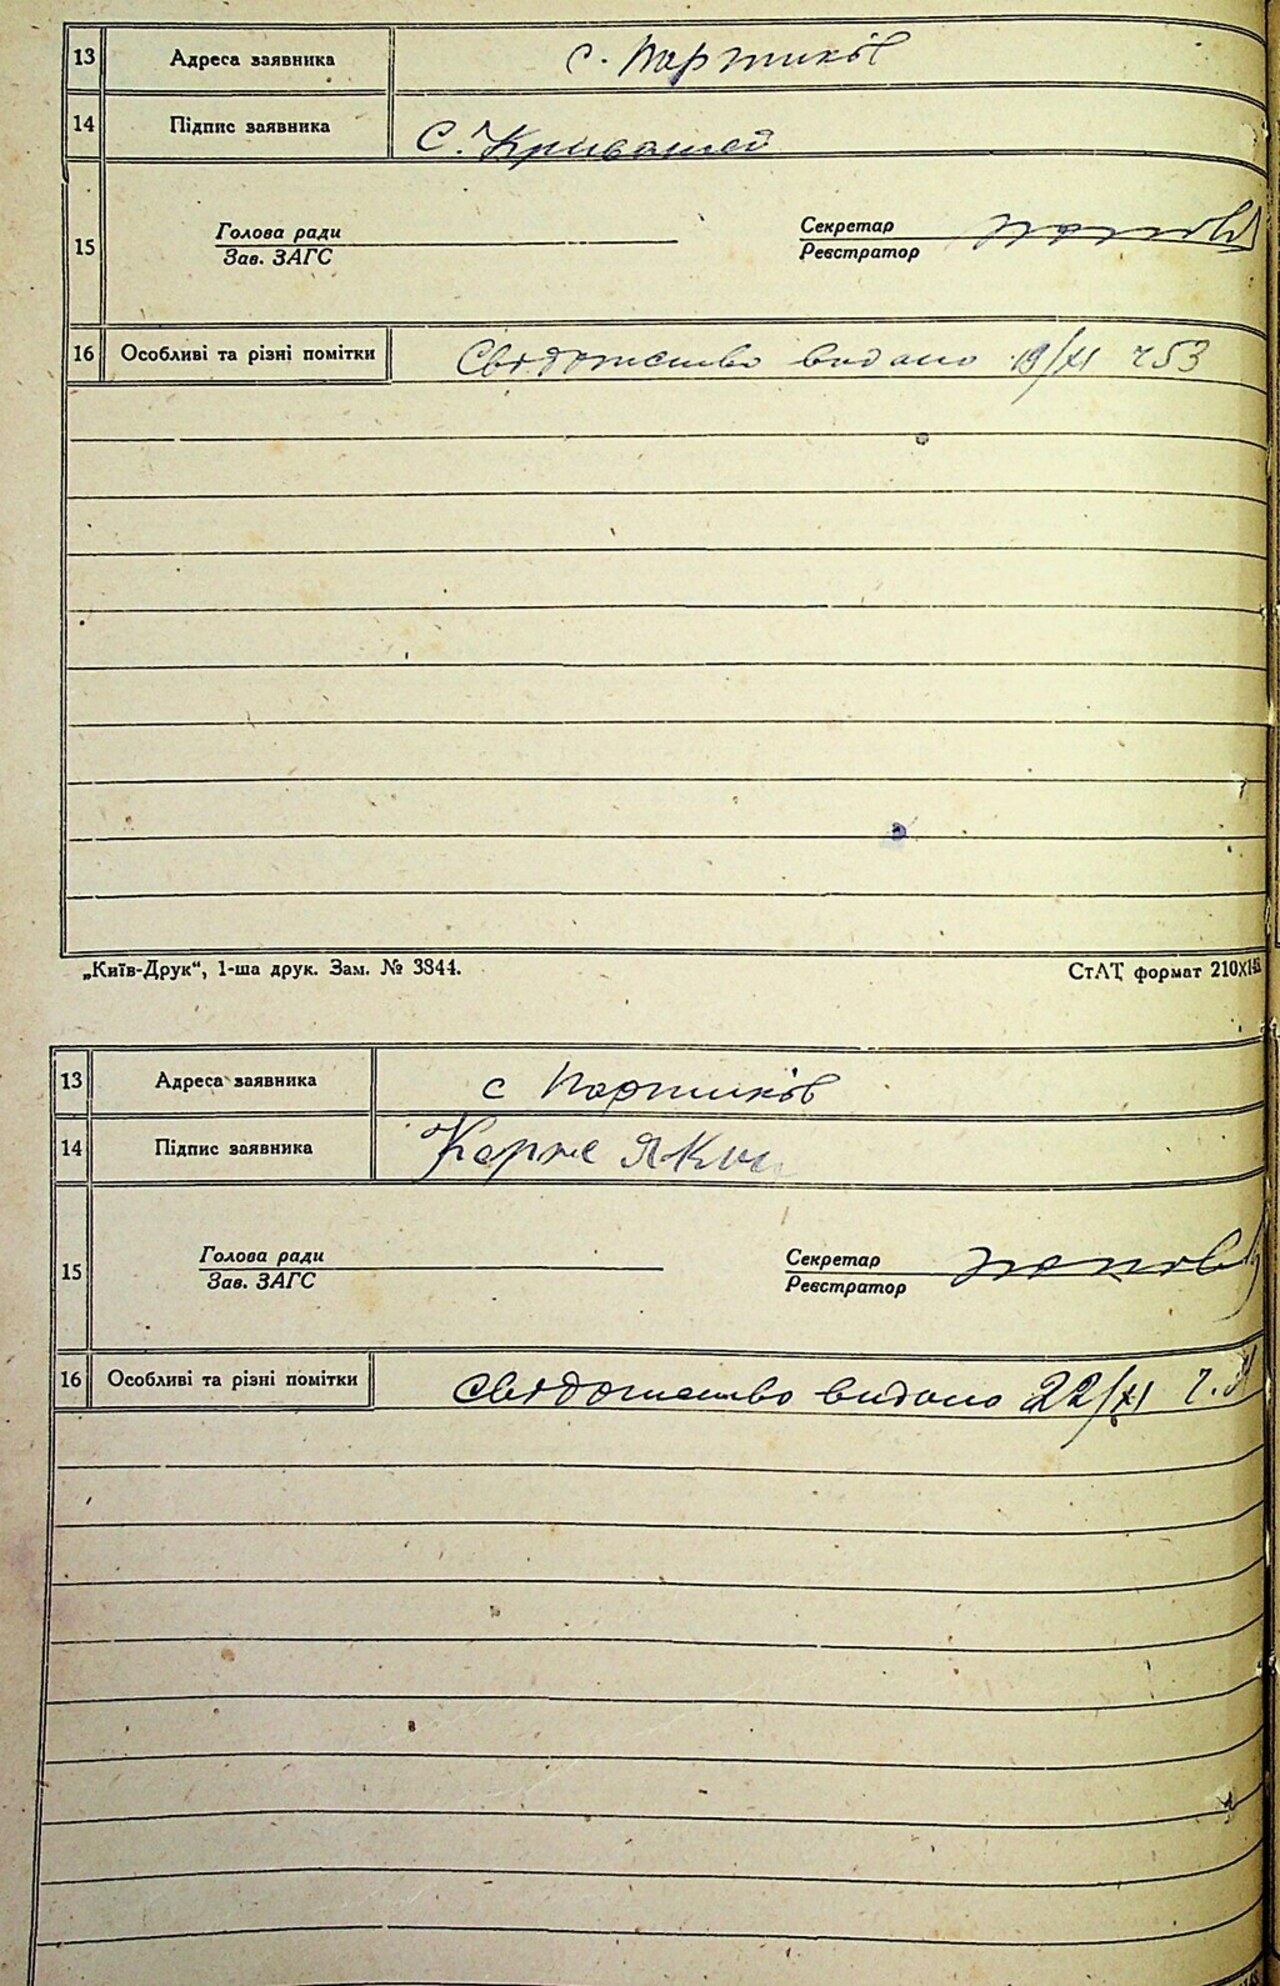 13 Адреса заявника с. Партиків
14 Підпис заявника С. Кривошей
Голова ради Секретар
15
Зав. ЗАГС Реєстратор
16 Особливі та різні помітки Свідотство видано 19/XI 253
„Київ-Друк“, 1-ша друк. Зам. № 3344. СтАТ, формат 210X145
13 Адреса заявника с Партиків
14 Підпис заявника Корже
Голова ради Секретар
15
Зав. ЗАГС Реєстратор
16 Особливі та різні помітки Свідотство видано 22/XI